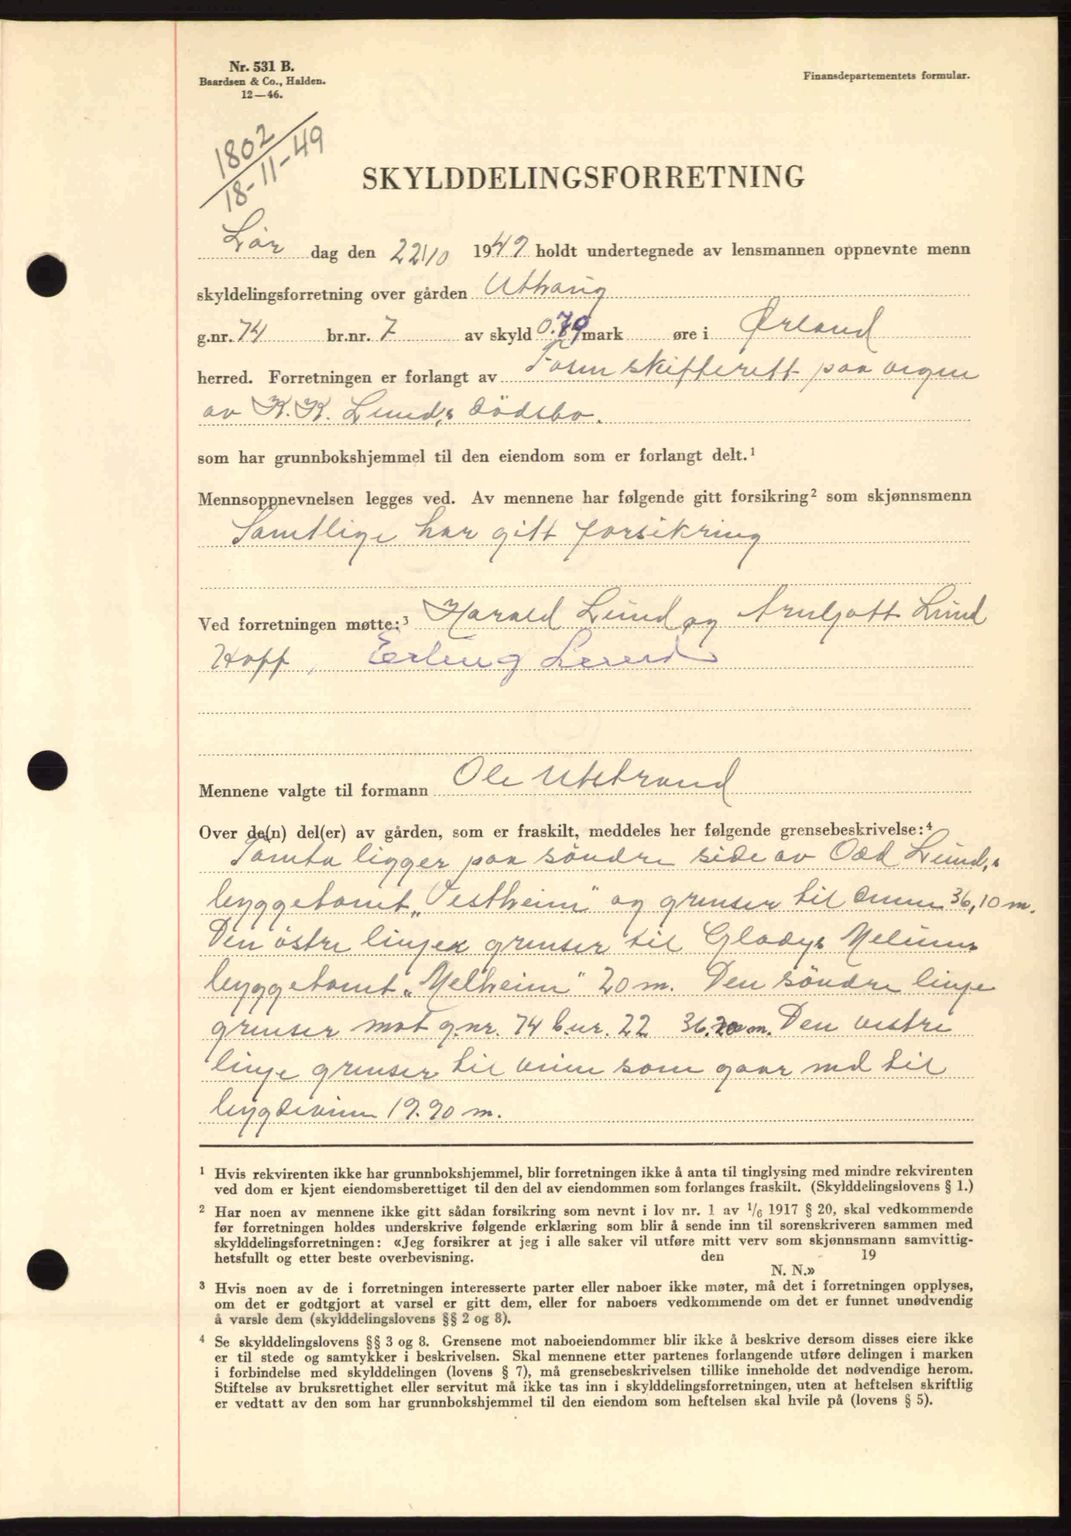 Nr. 531 B.
Baardsen & Co., Halden.
12—46.
Finansdepartementets formular.
1802
18-11-49
SKYLDDELINGSFORRETNING
Lør dag den 22/10 1949 holdt undertegnede av lensmannen oppnevnte menn
skyldelingsforretning over gården Uthaug
g.nr. 74 br.nr. 7 av skyld 0.79 mark øre i Ørland
herred. Forretningen er forlangt av Fosen skifterett paa vegne
av K. K. Lund,s dödsbo.
som har grunnbokshjemmel til den eiendom som er forlangt delt.¹
Mennsoppnevnelsen legges ved. Av mennene har følgende gitt forsikring² som skjønnsmenn
Samtlige har gitt forsikring
Ved forretningen møtte:³ Harald Lund og Arnljott Lund
Hoff, Erling Lund
Mennene valgte til formann Ole Utstrand
Over de(n) del(er) av gården, som er fraskilt, meddeles her følgende grensebeskrivelse:⁴
Tomta ligger paa söndre side av Odd Lund,s
byggetomt „Vestheim" og grenser til denne 36,10 m.
Den östre linje grenser til Gladys Melums
byggetomt „Melheim" 20 m. Den söndre linje
grenser mot g.nr. 74 b.nr. 22 36.20 m. Den vestre
linje grenser til veien som gaar ned til
bygdeveien 19.90 m.
¹ Hvis rekvirenten ikke har grunnbokshjemmel, blir forretningen ikke å anta til tinglysing med mindre rekvirenten
ved dom er kjent eiendomsberettiget til den del av eiendommen som forlanges fraskilt. (Skylddelingslovens § 1.)
² Har noen av mennene ikke gitt sådan forsikring som nevnt i lov nr. 1 av 1/6 1917 § 20, skal vedkommende
før forretningen holdes underskrive følgende erklæring som blir å sende inn til sorenskriveren sammen med
skylddelingsforretningen: «Jeg forsikrer at jeg i alle saker vil utføre mitt verv som skjønnsmann samvittig-
hetsfullt og etter beste overbevisning. den 19
N. N.»
³ Hvis noen av de i forretningen interesserte parter eller naboer ikke møter, må det i forretningen opplyses,
om det er godtgjort at varsel er gitt dem, eller for naboers vedkommende om det er funnet unødvendig
å varsle dem (skylddelingslovens §§ 2 og 8).
⁴ Se skylddelingslovens §§ 3 og 8. Grensene mot naboeiendommer blir ikke å beskrive dersom disses eiere ikke
er til stede og samtykker i beskrivelsen. Skal mennene etter partenes forlangende utføre delingen i marken
i forbindelse med skylddelingen (lovens § 7), må grensebeskrivelsen tillike inneholde det nødvendige herom.
Stiftelse av bruksrettighet eller servitut må ikke tas inn i skylddelingsforretningen, uten at heftelsen skriftlig
er vedtatt av den som har grunnbokshjemmel til den eiendom som heftelsen skal hvile på (lovens § 5).